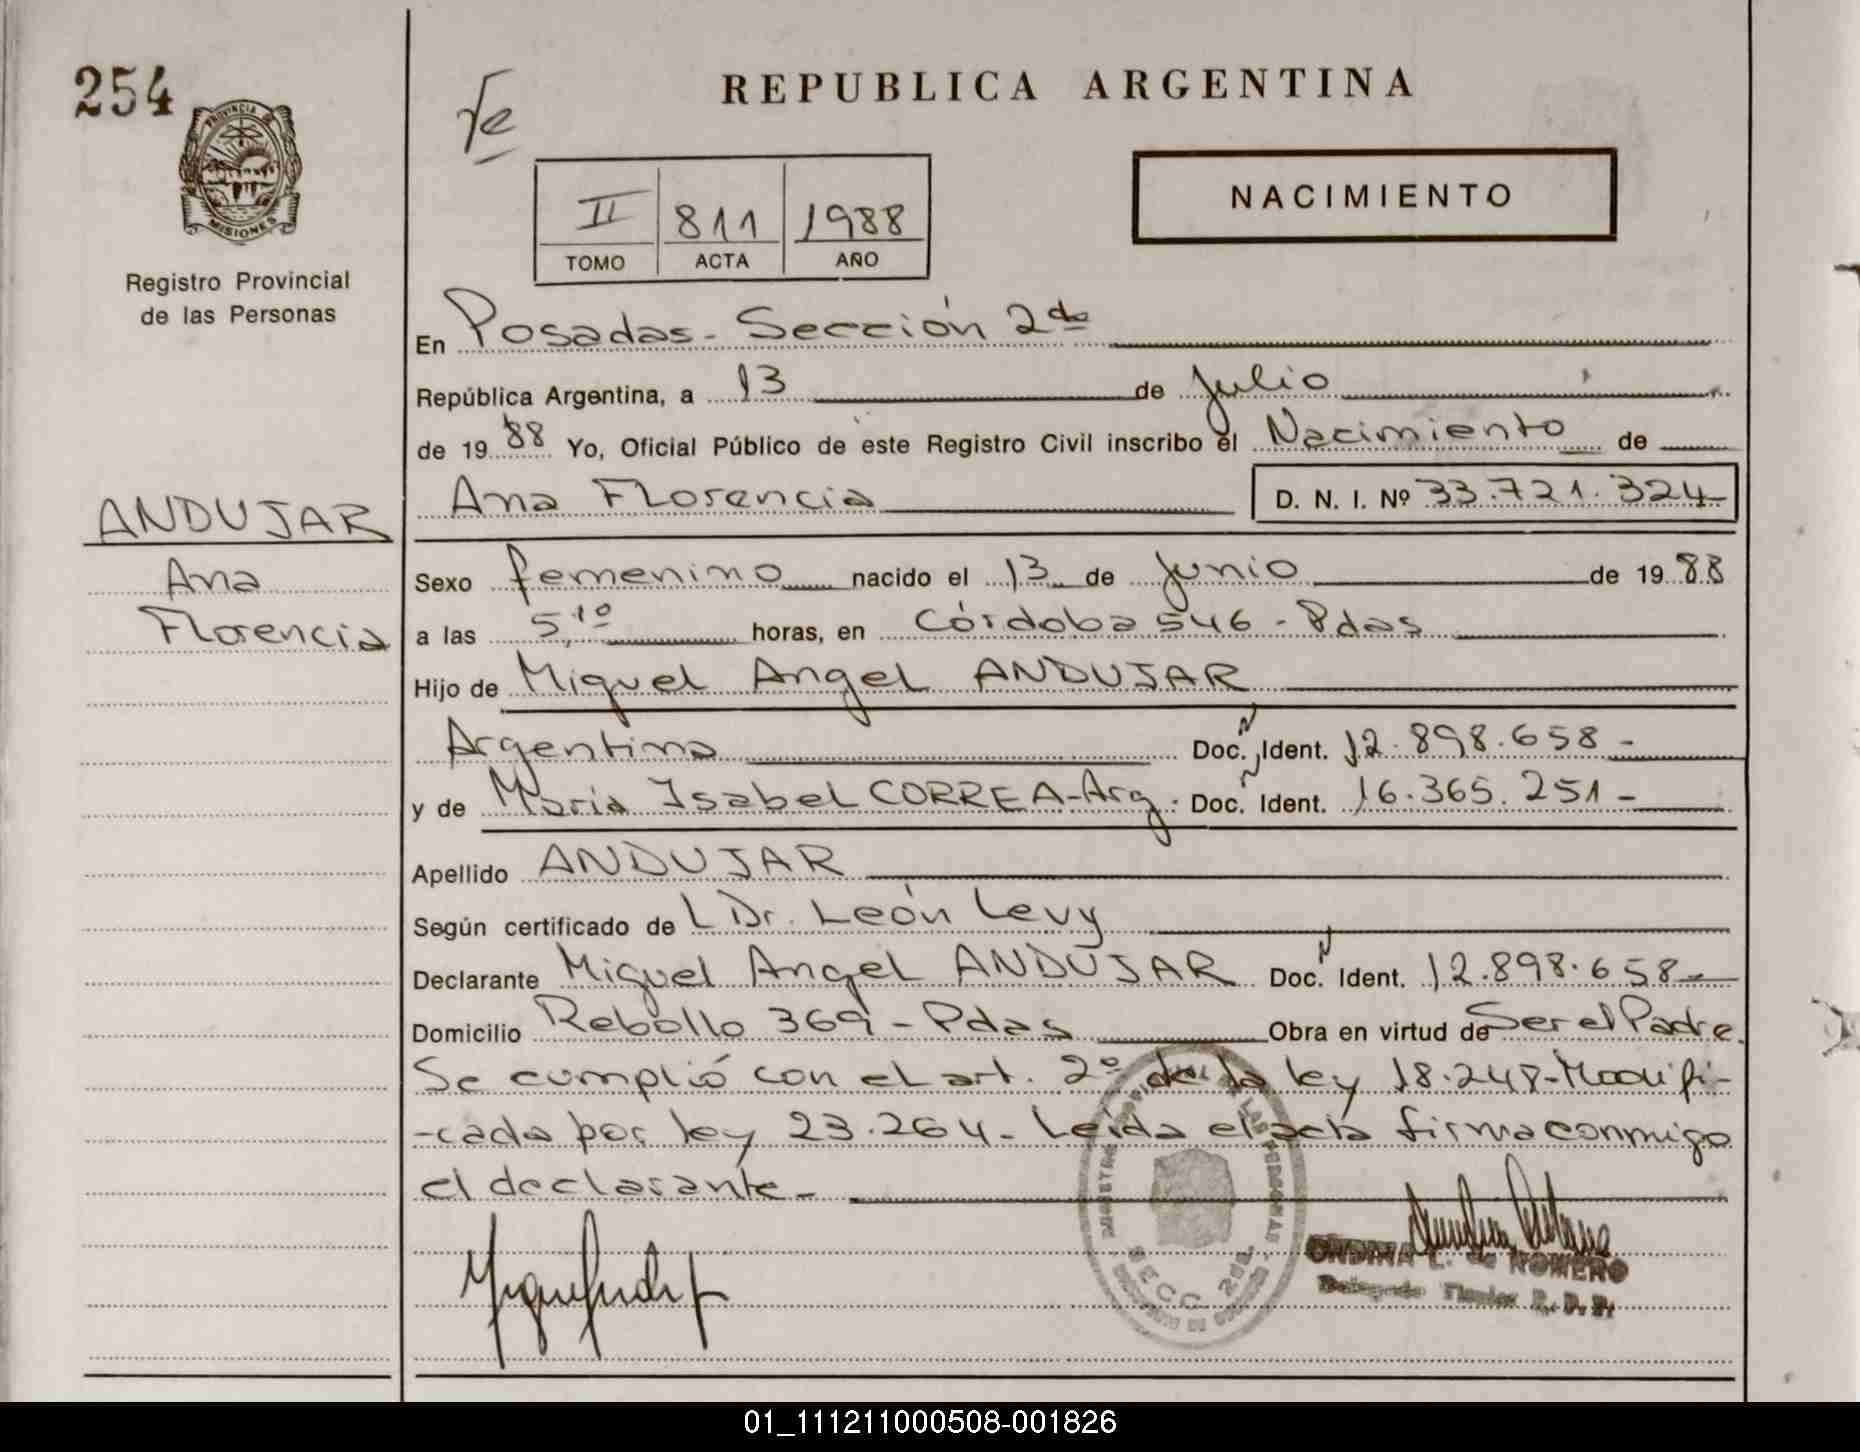 254
PROVINCIA DE
MISIONES
Registro Provincial
de las Personas
REPUBLICA ARGENTINA
NACIMIENTO
II 811 1988
TOMO ACTA AÑO
En Posadas - Sección 2da
República Argentina, a 13 de Julio
de 1988 Yo, Oficial Público de este Registro Civil inscribo el Nacimiento de
Ana Florencia D. N. I. Nº 33.721.324
ANDUJAR
Ana
Florencia
Sexo femenino nacido el 13 de Junio de 1988
a las 5,10 horas, en Córdoba 546 - Pdas
Hijo de Miguel Angel ANDUJAR
Argentino Doc. Ident. 12.898.658 -
y de María Isabel CORREA - Arg. Doc. Ident. 16.365.251 -
Apellido ANDUJAR
Según certificado de L Dr. León Levy
Declarante Miguel Angel ANDUJAR Doc. Ident. 12.898.658 -
Domicilio Rebollo 369 - Pdas Obra en virtud de Ser el Padre.
Se cumplió con el art. 2º de la ley 18.248 - Modifi-
-cada por ley 23.264 - Leída el acta firma conmigo
el declarante -
SECC. 2da.
ONDINA L. de ROMERO
01_111211000508-001826